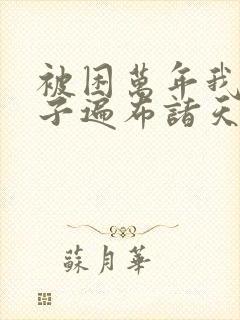 被困萬年我
子遍布諸天
蘇月華